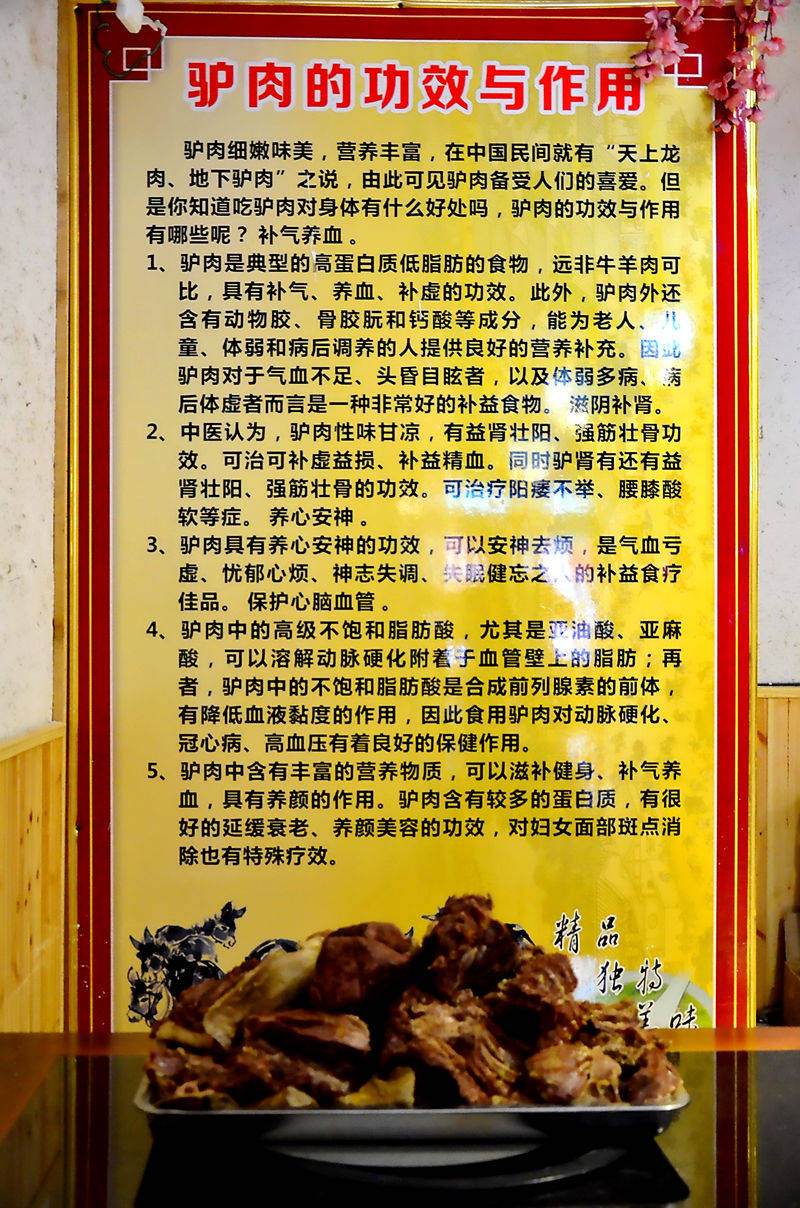 驴肉的功效与作用
驴肉细嫩味美，营养丰富，在中国民间就有“天上龙
肉、地下驴肉”之说，由此可见驴肉备受人们的喜爱。但
是你知道吃驴肉对身体有什么好处吗，驴肉的功效与作用
有哪些呢？补气养血。
1、驴肉是典型的高蛋白质低脂肪的食物，远非牛羊肉可
比，具有补气、养血、补虚的功效。此外，驴肉外还
含有动物胶、骨胶朊和钙酸等成分，能为老人、儿
童、体弱和病后调养的人提供良好的营养补充。因此
驴肉对于气血不足、头昏目眩者，以及体弱多病、病
后体虚者而言是一种非常好的补益食物。 滋阴补肾。
2、中医认为，驴肉性味甘凉，有益肾壮阳、强筋壮骨功
效。可治可补虚益损、补益精血。同时驴肾有还有益
肾壮阳、强筋壮骨的功效。可治疗阳痿不举、腰膝酸
软等症。 养心安神。
3、驴肉具有养心安神的功效，可以安神去烦，是气血亏
虚、忧郁心烦、神志失调、失眠健忘之人的补益食疗
佳品。 保护心脑血管。
4、驴肉中的高级不饱和脂肪酸，尤其是亚油酸、亚麻
酸，可以溶解动脉硬化附着于血管壁上的脂肪；再
者，驴肉中的不饱和脂肪酸是合成前列腺素的前体，
有降低血液黏度的作用，因此食用驴肉对动脉硬化、
冠心病、高血压有着良好的保健作用。
5、驴肉中含有丰富的营养物质，可以滋补健身、补气养
血，具有养颜的作用。驴肉含有较多的蛋白质，有很
好的延缓衰老、养颜美容的功效，对妇女面部斑点消
除也有特殊疗效。
精品
独特
美味